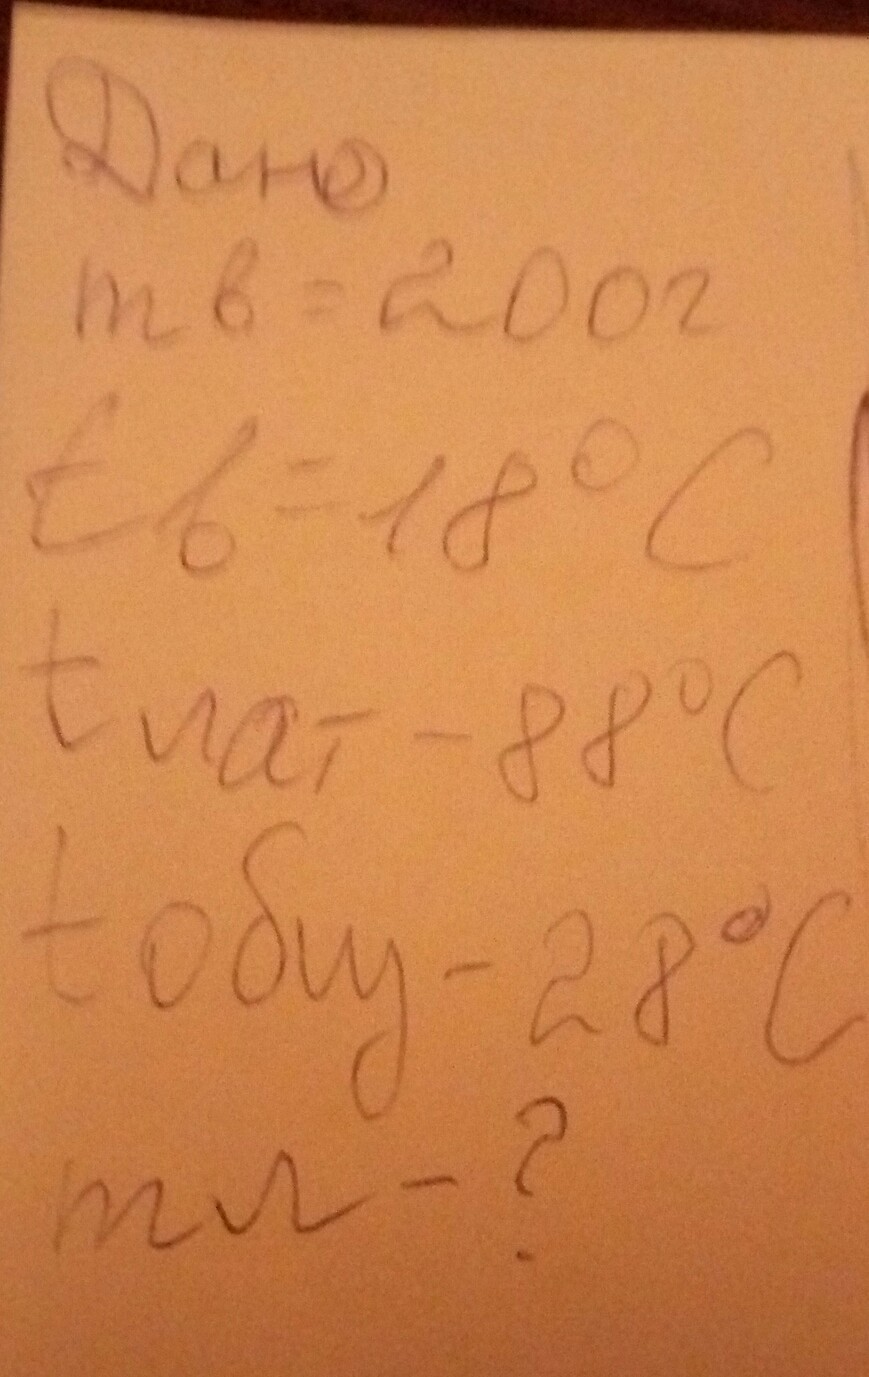 Дано
mв = 200г
tв = 18°C
tлат - 88°C
tобщ - 28°C
mл - ?